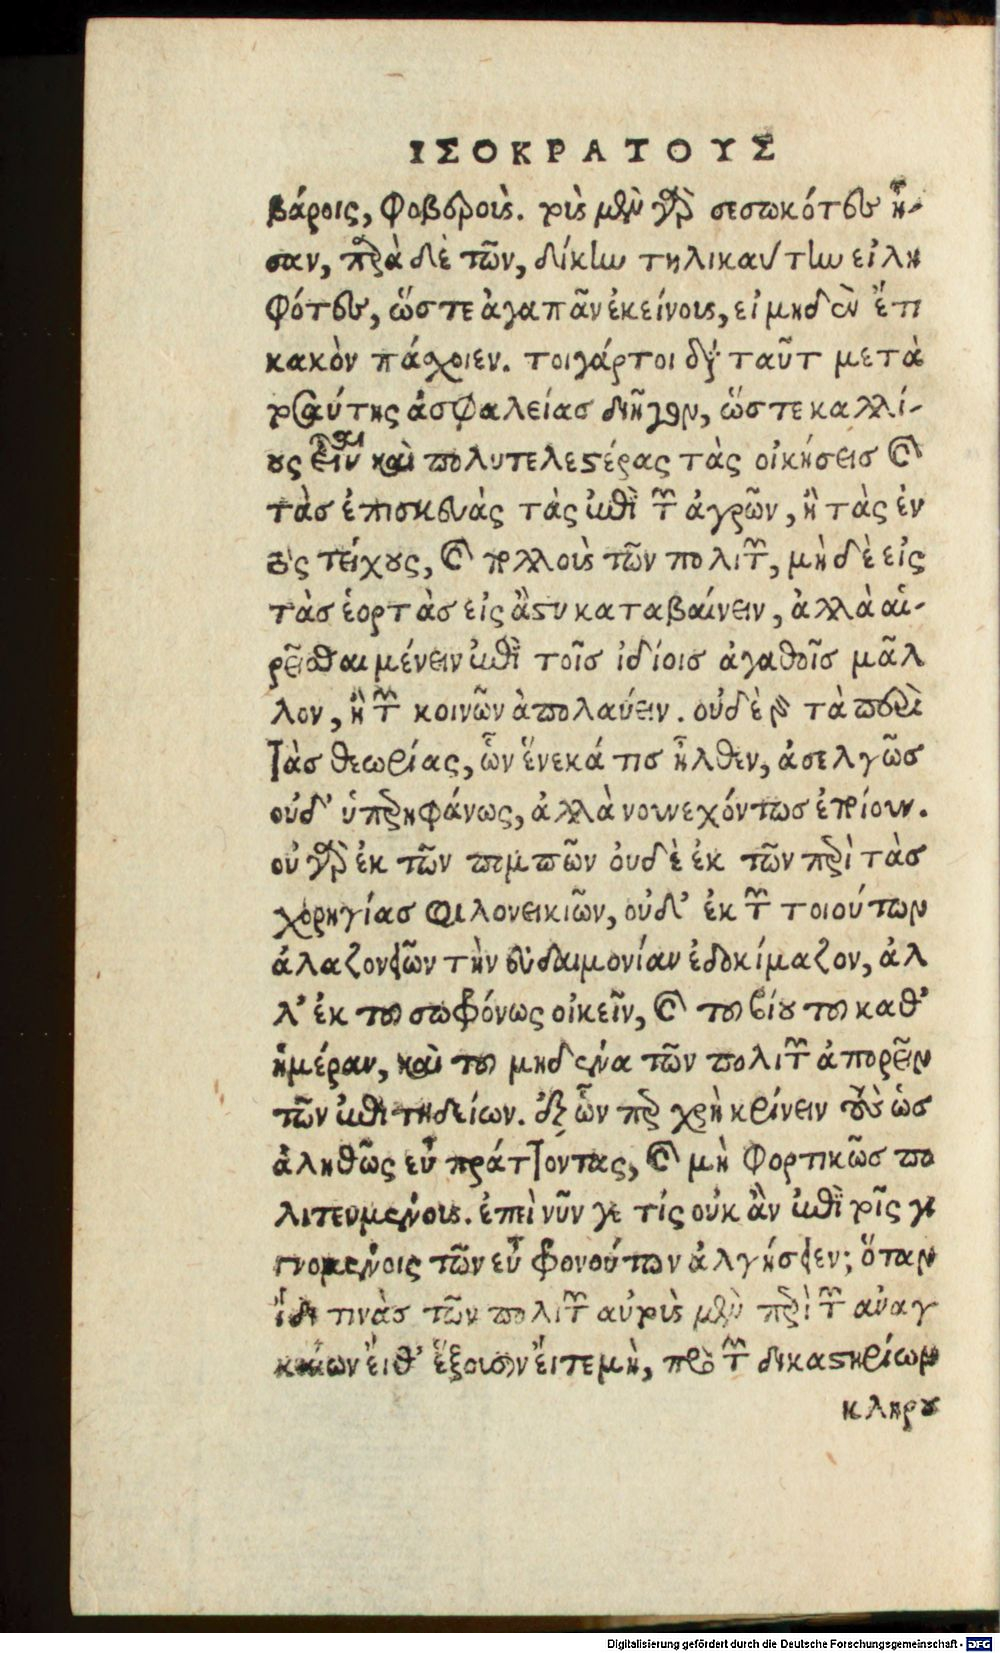 ΙΣΟΚΡΑΤΟΥΣ
βάροις, φοβεροὺς. τοὺς μὲν γὰρ σεσωκότες ἦ-
σαν, παρὰ δὲ τῶν, δίκην τηλικαύτην εἰλη
φότες, ὥστε ἀγαπᾶν ἐκείνους, εἰ μηδὲν ἔτι
κακὸν πάσχοιεν. τοιγάρτοι διὰ ταῦτ μετὰ
τοσαύτης ἀσφαλείας διῆγον, ὥστε καλλί-
ους εἶναι καὶ πολυτελεστέρας τὰς οἰκήσεις καὶ
τὰς ἐπισκευὰς τὰς ἐπὶ τῶν ἀγρῶν, ἢ τὰς ἐν
τὸς τείχους, καὶ πολλοὺς τῶν πολιτῶν, μὴ δὲ εἰς
τὰς ἑορτὰς εἰς ἄστυ καταβαίνειν, ἀλλὰ αἱ-
ρεῖσθαι μένειν ἐπὶ τοῖς ἰδίοις ἀγαθοῖς μᾶλ
λον, ἢ τῶν κοινῶν ἀπολαύειν. οὐδὲ γὰρ τὰ περὶ
τὰς θεωρίας, ὧν ἕνεκά τις ἦλθεν, ἀσελγῶς
οὐδ' ὑπερηφάνως, ἀλλὰ νουνεχόντως ἐποίουν.
οὐ γὰρ ἐκ τῶν πομπῶν οὐδὲ ἐκ τῶν περὶ τὰς
χορηγίας φιλονεικιῶν, οὐδ' ἐκ τῶν τοιούτων
ἀλαζονειῶν τὴν εὐδαιμονίαν ἐδοκίμαζον, ἀλ
λ' ἐκ τοῦ σωφρόνως οἰκεῖν, καὶ τοῦ βίου τοῦ καθ'
ἡμέραν, καὶ τοῦ μηδένα τῶν πολιτῶν ἀπορεῖν
τῶν ἐπιτηδείων. ἐξ ὧνπερ χρὴ κρίνειν τοὺς ὡς
ἀληθῶς εὖ πράττοντας, καὶ μὴ φορτικῶς πο
λιτευμένους. ἐπεὶ νῦν γε τίς οὐκ ἂν ἐπὶ τοῖς γι
γνομένοις τῶν εὖ φρονούντων ἀλγήσειεν; ὅταν
ἴδῃ τινὰς τῶν πολιτῶν αὐτοὺς μὲν περὶ τῶν ἀναγ
καίων εἴθ' ἕξουσιν εἴτε μὴ, πρὸ τῶν δικαστηρίων
κληρου